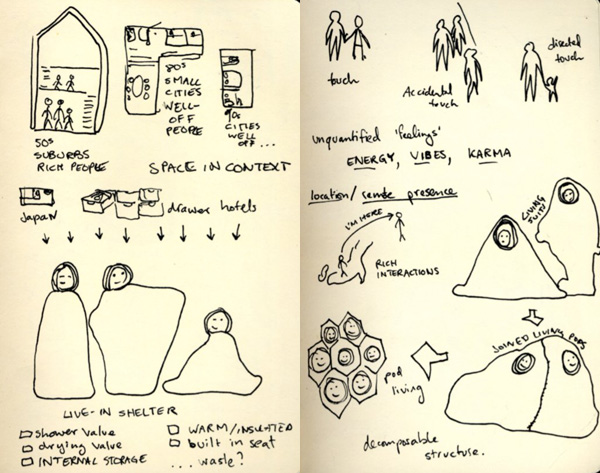 50s
SUBURBS
RICH PEOPLE
80s
SMALL
CITIES
WELL-
OFF
PEOPLE
90s
CITIES
WELL
OFF ...
SPACE IN CONTEXT
Japan
drawer hotels
LIVE-IN SHELTER
shower value
drying value
INTERNAL STORAGE
WARM/INSULATED
built in seat
... waste?
touch
Accidental
touch
directed
touch
unquantified 'feelings'
ENERGY, VIBES, KARMA
location/remote presence
I'M HERE
RICH
INTERACTIONS
LIVING
SUITS
JOINED LIVING PODS
pod
living
decomposable
structure.